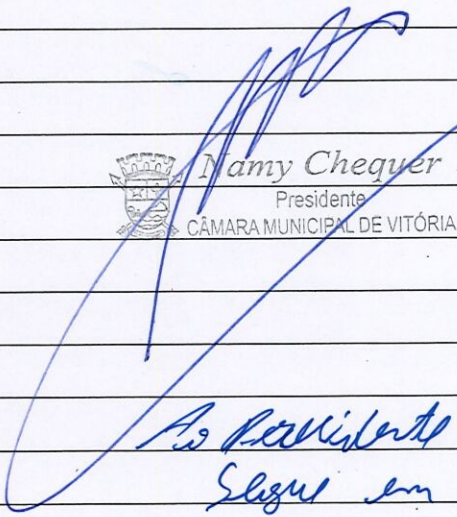 Namy Chequer
Presidente
CÂMARA MUNICIPAL DE VITÓRIA
Ao Presidente
Segue em